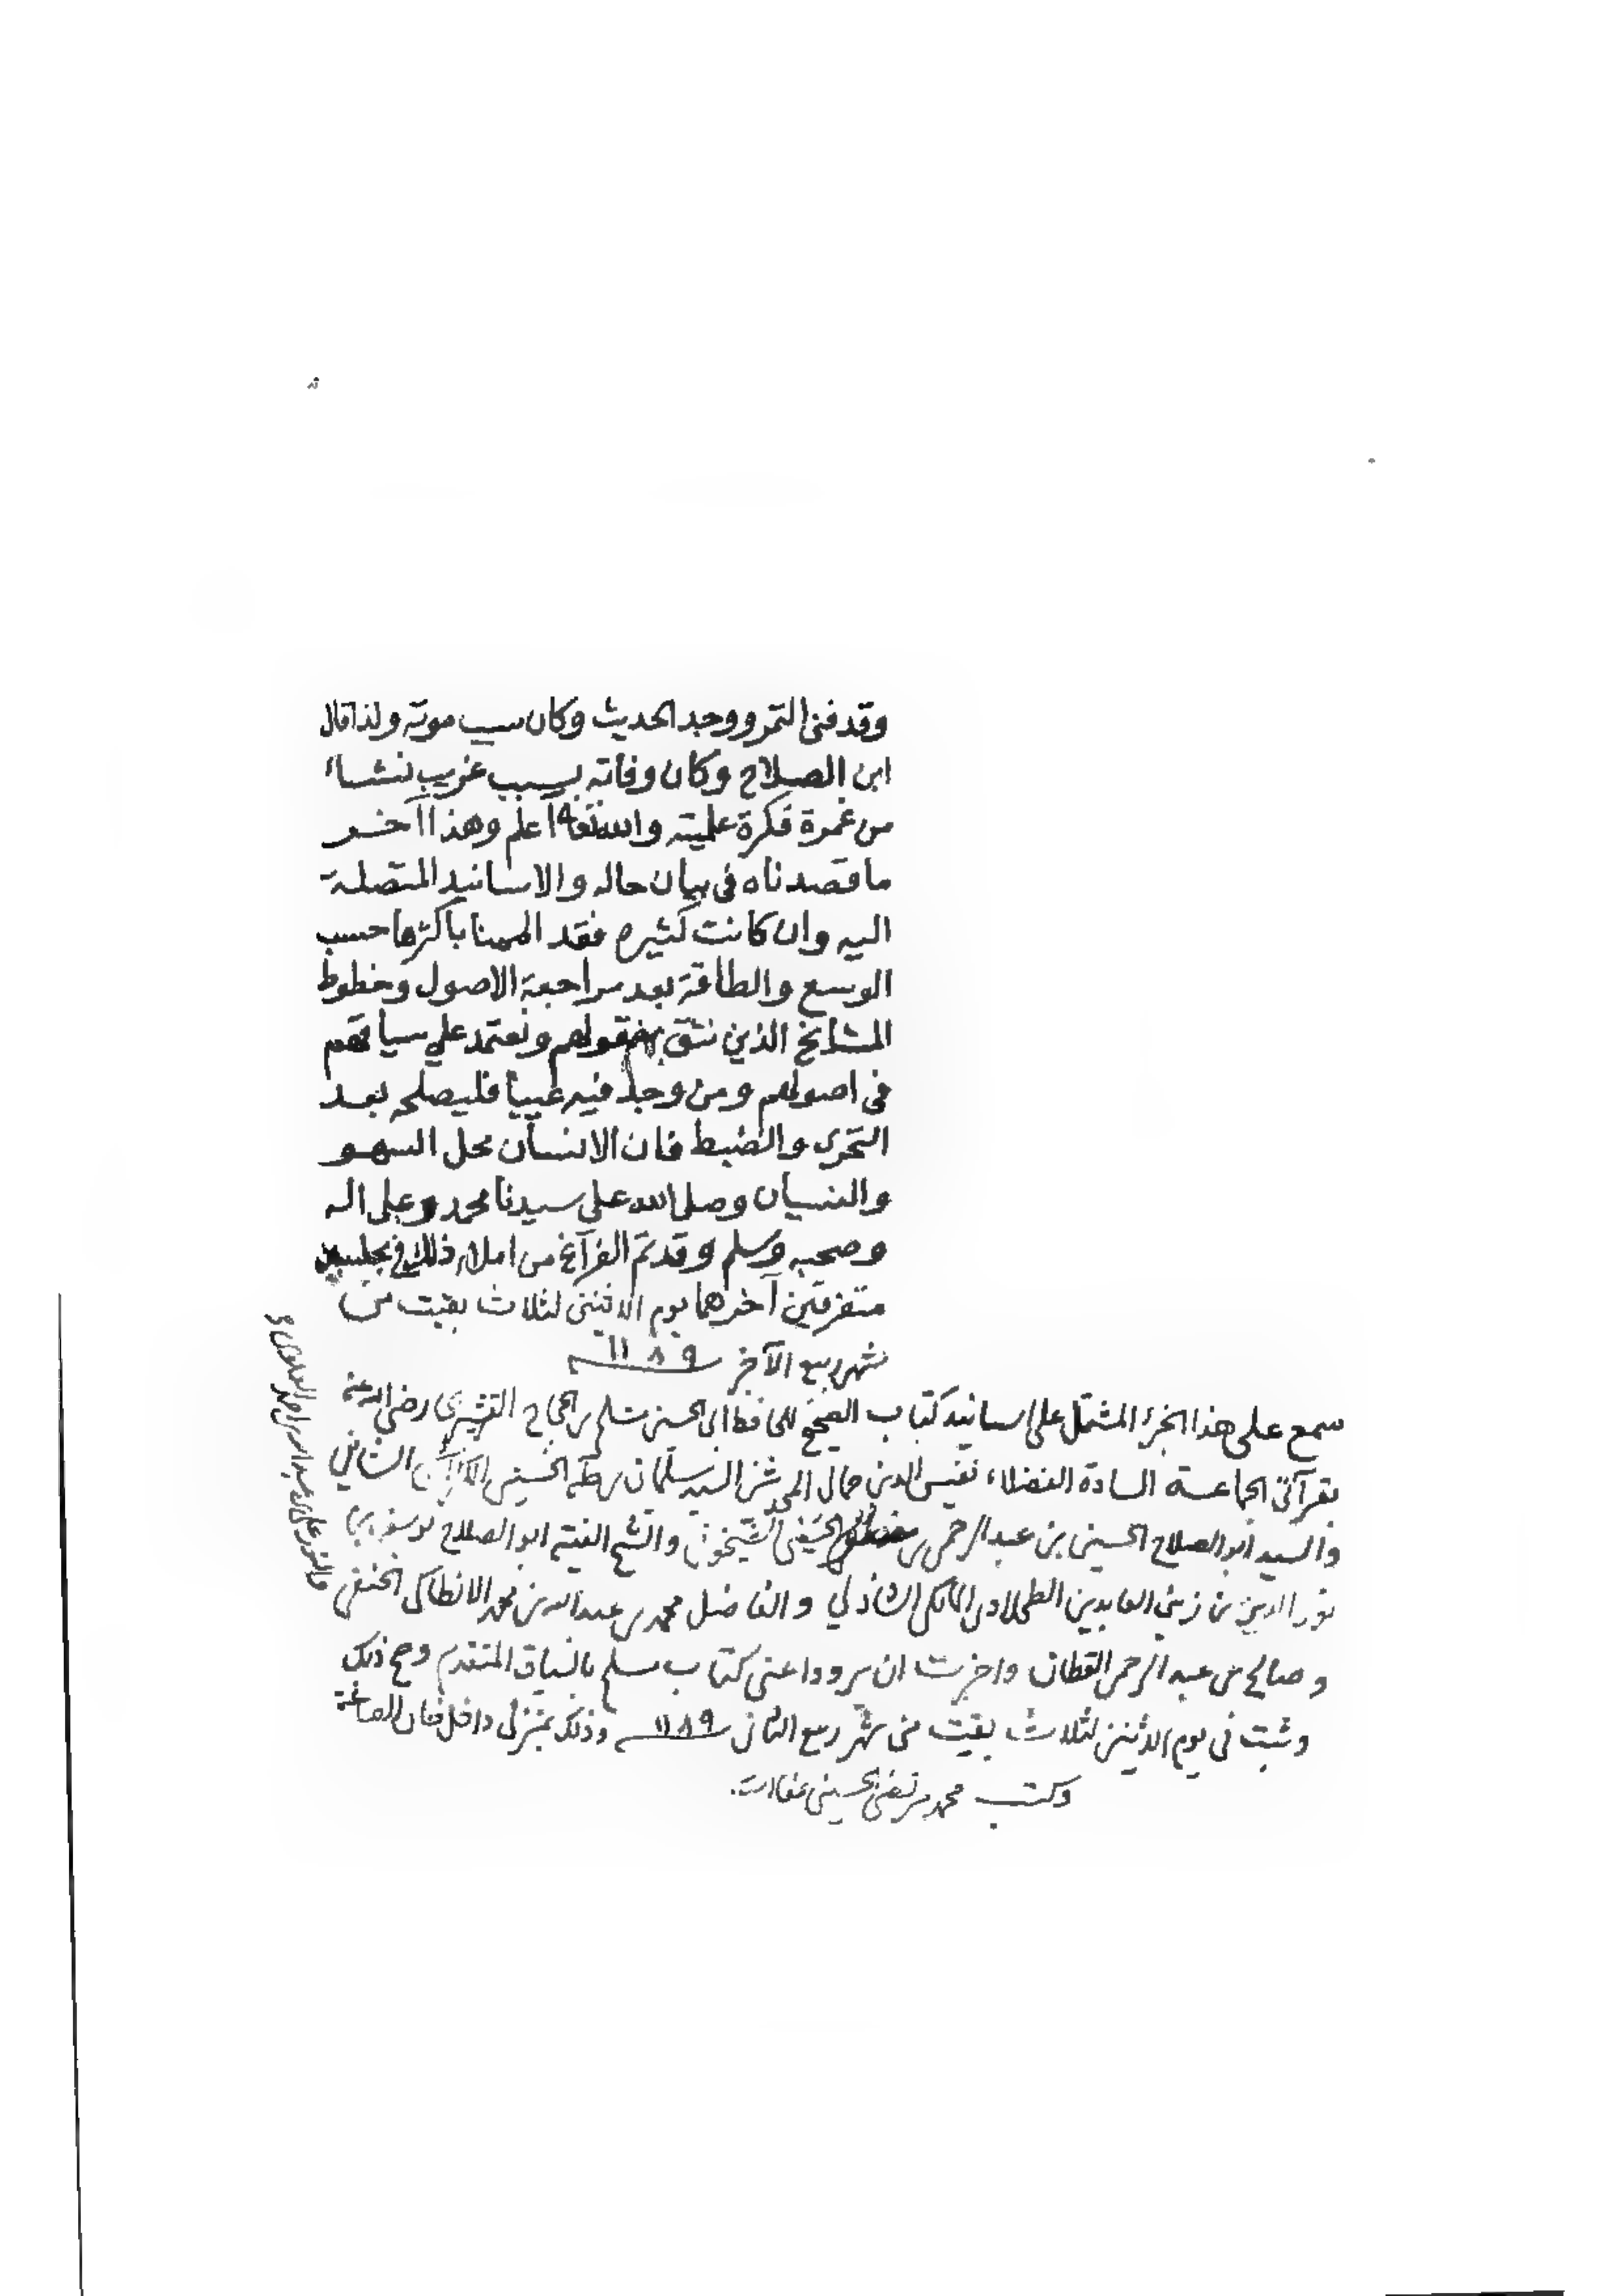 وقد فنى التمر ووجد الحديث وكان سبب موته ولذا قال
ابن الصلاح وكان وفاته بسبب غريب نشاء
من غمرة فكرة علمية والله تعا اعلم وهذا آخر
ما قصدناه فى بيان حاله والاسانيد المتصلة
اليه وان كانت كثيره فقد الممنا باكثرها حسب
الوسع والطاقة بعد مراجعة الاصول وخطوط
المشايخ الذين نثق بهم ونعتمد على سياقهم
فى اصولهم ومن وجد فيه عيبا فليصلحه بعد
التحرى والضبط فان الانسان محل السهو
والنسيان وصلى الله على سيدنا محمد وعلى اله
وصحبه وسلم وقد تم الفراغ من املاء ذلك فى مجلسين
متفرقين آخرهما يوم الاثنين لثلاث بقيت من
شهر ربيع الآخر ١١٨٩
سمع على هذا الجزء المشتمل على اسانيد كتاب الصحيح للحافظ ابى الحسين مسلم بن الحجاج القشيرى رضى الله عنه
بقرآتى الجماعة السادة الفضلاء نفيس الدين جمال المحدثين السيد سليمان بن طه الحسينى الشافعي
والسيد ابو الصلاح الحسينى بن عبد الرحمن الشيخونى والشيخ الفقيه ابو الصلاح
نور الدين بن زين العابدين المالكى الشاذلي والفاضل محمد بن عبد الله بن محمد الانطاكى الحنفى
وصالح بن عبد الرحمن القطان واجزت ان يرووا عنى كتاب مسلم بالسياق المتقدم وصح ذلك
وثبت فى يوم الاثنين لثلاث بقيت من شهر ربيع الثانى ١١٨٩ وذلك بمنزلى داخل خان الصاغة
وكتب محمد مرتضى الحسينى